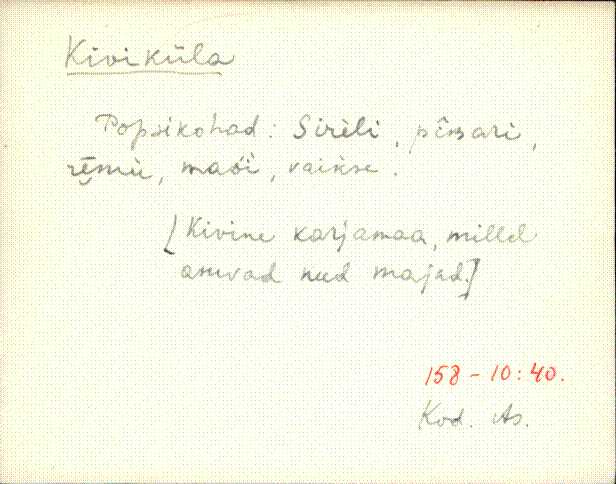 Kiviküla
Popsikohad: Sirèli, pîsari,
maði, vaikse.
[Kivine karjamaa, millel
asuvad need majad.]
158-10:40.
Kod. As.